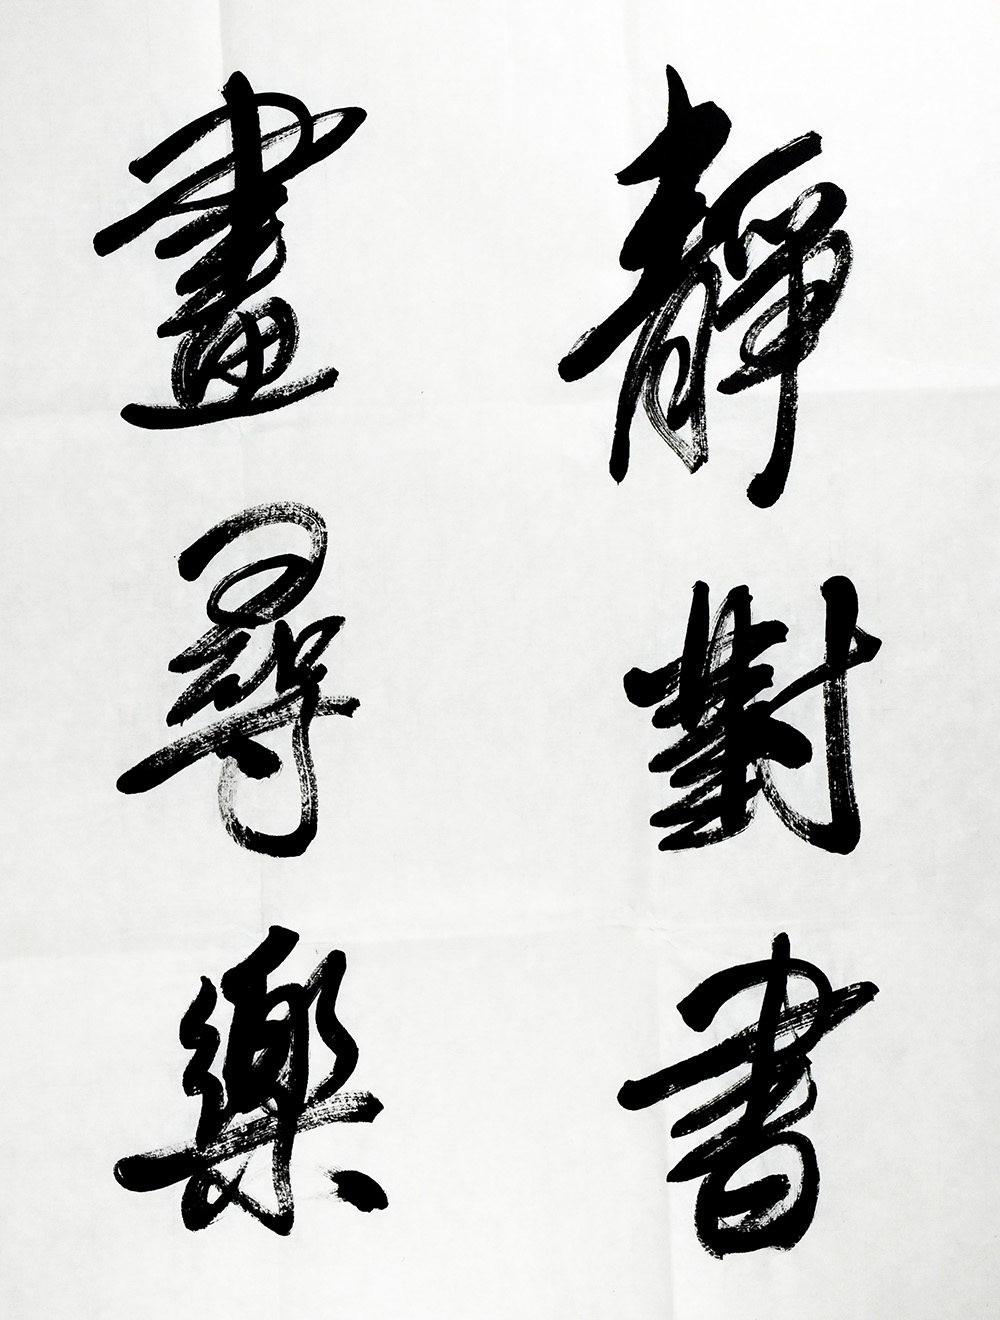 靜對書
畫尋樂